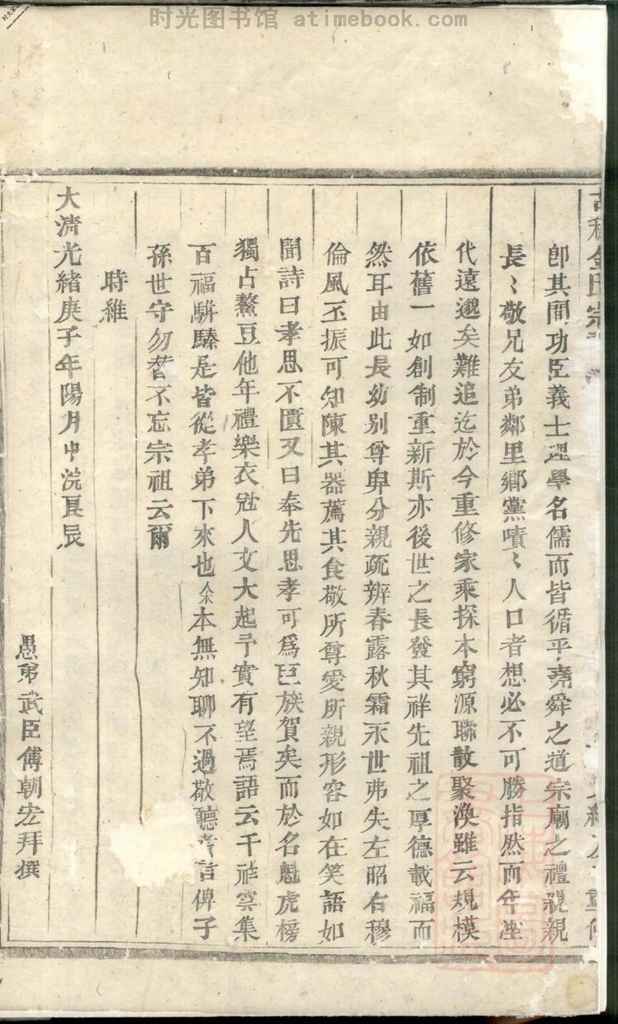 时光图书馆 atimebook.com
卽其間功臣義士理學名儒而皆循乎堯舜之道宗廟之禮親親
長〻敬兄友弟鄰里鄉黨嘖〻人口者想必不可勝指然而年湮
代遠邈矣難追迄於今重修家乘探本窮源聯散聚渙雖云規模
依舊一如創制重新斯亦後世之長發其祥先祖之厚德載福而
然耳由此長幼別尊卑分親疏辨春露秋霜永世弗失左昭右穆
倫風丕振可知陳其器薦其食敬所尊愛所親形容如在笑語如
聞詩曰孝思不匱又曰奉先思孝可為巨族賀矣而於名魁虎榜
獨占鰲豆他年禮樂衣冠人文大起予實有望焉語云千祥雲集
百福駢臻是皆從孝弟下來也余本無知聊不過敬聽言俾子
孫世守勿替不忘宗祖云爾
時維
大清光緒庚子年陽月中浣良辰
愚弟武臣傅朝宏拜撰